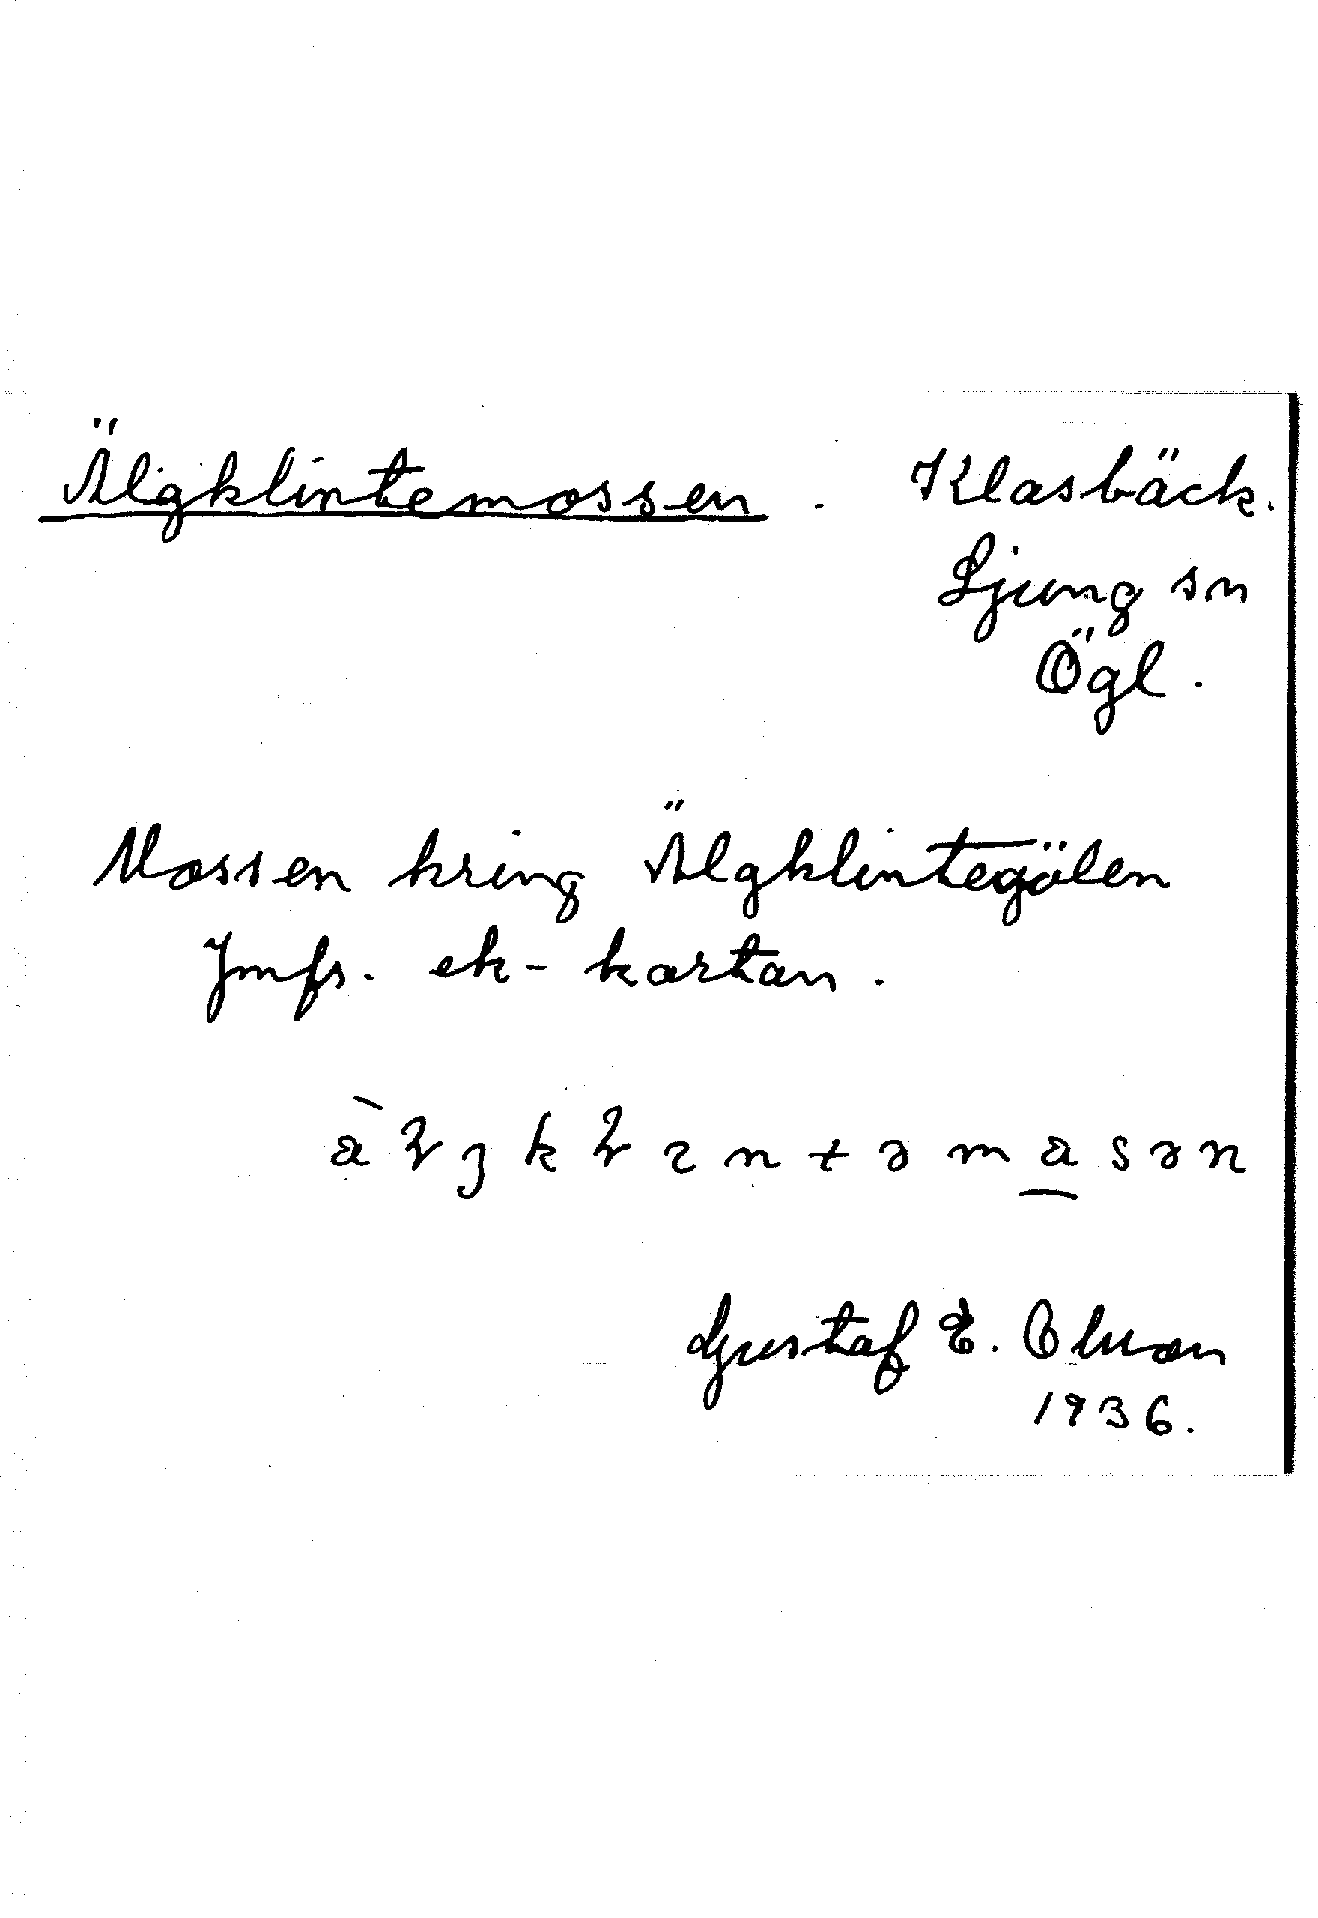 Älgklintemossen. Klasbäck.
Ljung sn
Ögl.
Mossen kring Älgklintegölen
Jmfr. ek-kartan.
Gustaf E.
1936.